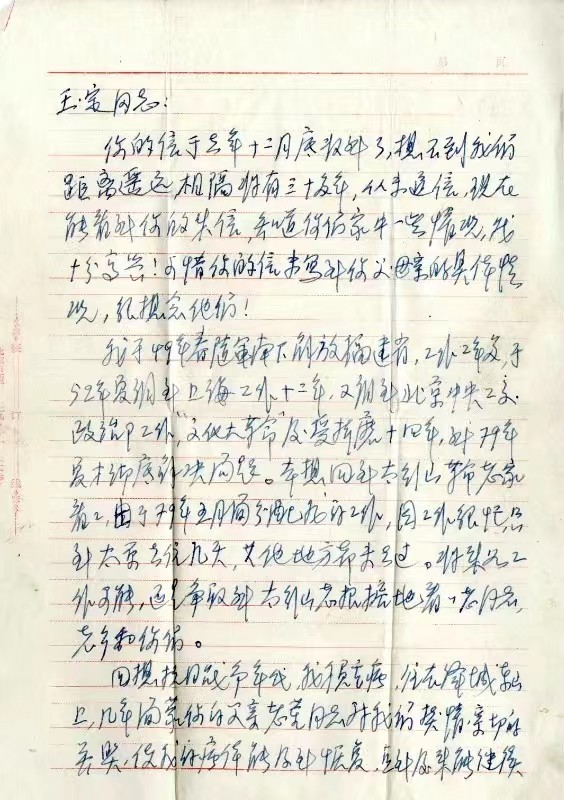 玉宝同志：
你的信于去年十二月底收到了，想不到我们
距离遥远，相隔将有三十多年，从未通信，现在
能看到你的来信，知道你们家中一些情况，我
十分高兴！可惜你的信未写到你父母亲的具体情
况，很想念他们！
我于49年春随军南下解放福建省，工作2年多，于
52年夏调到上海工作十二年，又调到北京中央工交
政治部工作，"文化大革命"及受折磨十四年，到79年
夏才彻底解决问题。本想回到太行山革命老家
看看，由于79年五月间分配我的工作，因工作很忙只
到太原去住几天，其他地方都未去过。将来如工
作可能，还是争取到太行山老根据地看看老同志，
老乡和你们。
回想抗日战争年代，我损去病，住在 城 山
上，几年间蒙你的父亲老 同志对我们热情亲切的
关照，使我的病体能及时恢复，及时 能继续